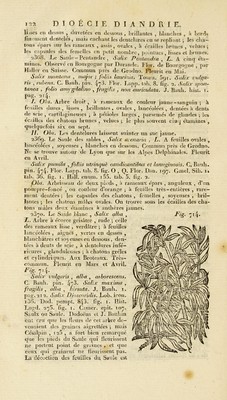 122 DIOÉCIE DIANDRIE.
lisses en dessus, duvetées en dessous, brillantes, blanches, à bords
finement dentelés, mais cachant les dentelures en se repliant; les cha-
tons épars sur les rameaux, assis, ovales, à écailles brunes, velues;
les capsules des femelles en petit nombre, pointues, lisses et brunes.
2368. Le Saule-Pentandre, Salix Pentandra, L. à cinq éta-
mines. Observé en Bourgogne par Durande, Flor. de Bourgogne, par
Haller en Suisse. Commun près de Genève. Fleurit en Mai.
Salix montana, major; foliis laurinis. Tourn. 591. Salix vulga-
ris, rubens. C. Bauh. pin. 473. Flor. Lappon. tab. 8, fig. 2. Salix spon-
tanea, folio amygdalino, fragilis, non auriculata. J. Bauh. hist. 1.
pag. 214.
I. Obs. Arbre droit, à rameaux de couleur jaune-sanguine; à
feuilles dures, lisses, brillantes, ovales, lancéolées, dentées à dents
de scie, cartilagineuses; à pétioles larges, parsemés de glandes; les
écailles des chatons fermes, velues; le plus souvent cinq étamines,
quelquefois six ou sept.
II. Obs. Les dentelures laissent suinter un suc jaune.
2369. Le Saule des sables, Salix arenaria, L. A feuilles ovales,
lancéolées, soyeuses, blanches en dessous. Commun près de Genève.
Ne se trouve autour de Lyon que sur les Alpes Delphinales. Fleurit
en Avril.
Salix pumila, foliis utrinquè candicantibus et lanuginosis. C. Bauh.
pin. 474. Flor. Lapp. tab. 8, fig. O, Q. Flor. Dan. 197. Gmel. Sib. 1.
tab. 36. fig. 1. Hall. enum. 155. tab. 5. fig. 2.
Obs. Arbrisseau de deux pieds, à rameaux épars, anguleux, d'un
pourpre foncé, ou couleur d'orange; à feuilles très-entières, rare-
ment dentées; les capsules des chatons, femelles, soyeuses, blan-
ches; les chatons mâles ovales. On trouve sous les écailles des cha-
tons mâles deux étamines à anthères jaunes.
2370. Le Saule blanc, Salix alba,
L. Arbre à écorce grisâtre, rude; celle
des rameaux lisse, verdâtre; à feuilles
lancéolées, aiguës, vertes en dessus,
blanchâtres et soyeuses en dessous, den-
tées à dents de scie, à dentelures infé-
rieures, glanduleuses; à chatons grêles
et cylindriques. Aux Broteaux. Très-
commun. Fleurit en Mars et Avril.
Fig. 714.
Salix vulgaris alba, arborescens.
C. Bauh. pin. 473. Salix maxima,
fragilis, alba, hirsuta. J. Bauh. 1.
pag. 212. Salix Dioscoridis. Lob. icon.
136. Dod. pempt. 843. fig. 1. Hist.
Lugd. 276. fig. 1. Camer. epit. 107.
Saule ou Saule. Dodoëns et J. Bauhin
ont cru que les fleurs de cet arbre de-
venoient des graines aigrettées; mais
Césalpin, 125, a fort bien remarqué
que les pieds du Saule qui fleurissent
ne portent point de graines, et que
ceux qui grainent ne fleurissent pas.
La décoction des feuilles du Saule est
Fig. 714.